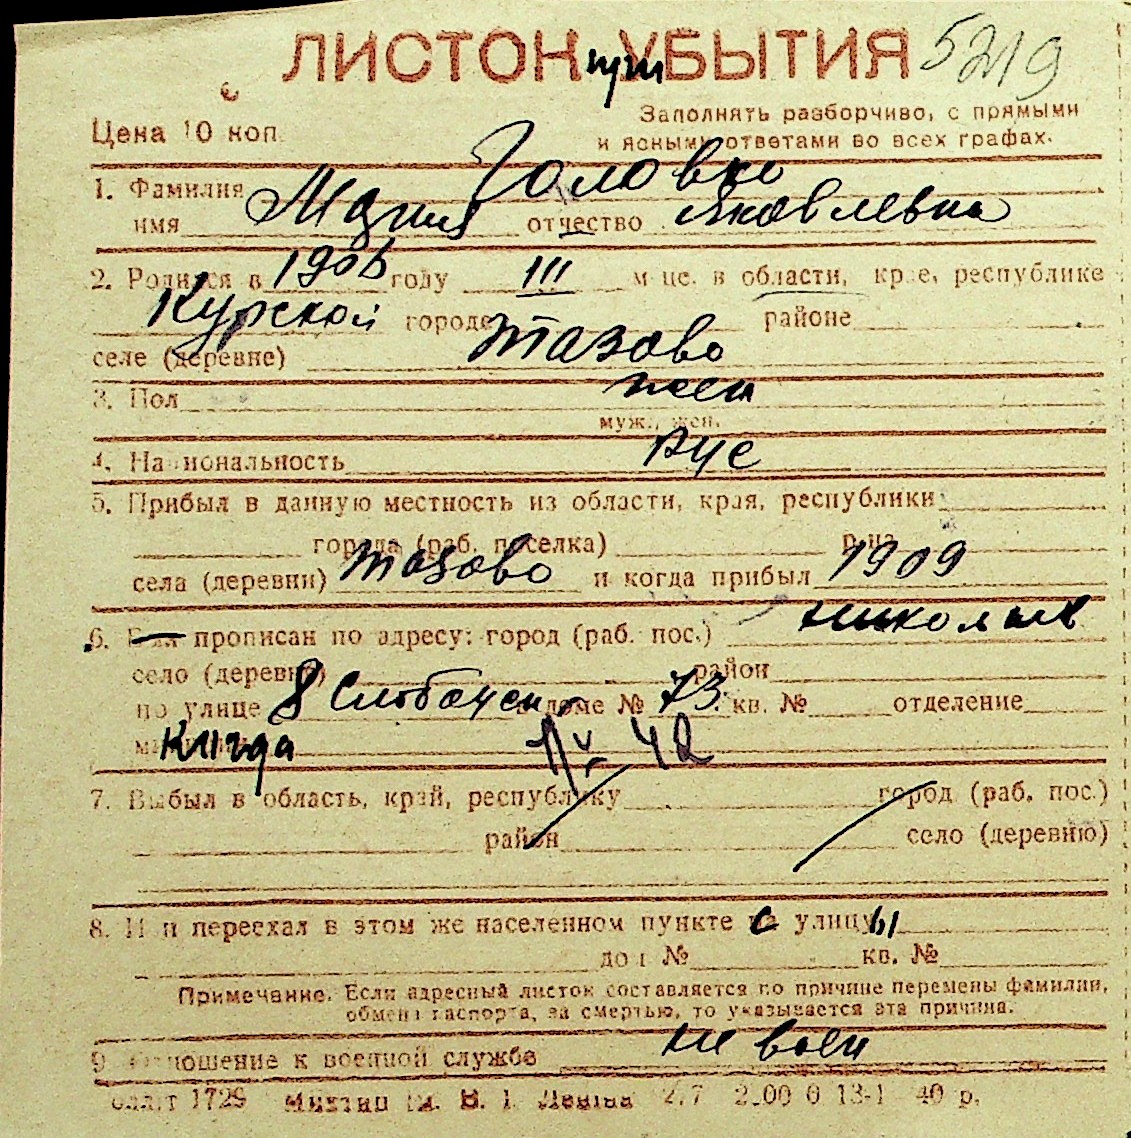 ЛИСТОК УБЫТИЯ 5219
Цена 10 коп.
Заполнять разборчиво, с прямыми
и ясными ответами во всех графах.
1. Фамилия Головко
имя Мария отчество Яковлевна
2. Родился в 1906 году III м-це. в области, крае, республике
Курской городе районе
селе (деревне) Тазово
3. Пол жен
муж., жен.
4. Национальность Рус
5. Прибыл в данную местность из области, края, республики
города (раб. поселка) р-на
села (деревни) Тазово и когда прибыл 1909
6. прописан по адресу: город (раб. пос.) Николаев
село (деревня) район
по улице 8 Слободск в доме № 73 кв. № отделение
милиции 42
7. Выбыл в область, край, республику город (раб. пос.)
район село (деревню)
8. Или переехал в этом же населенном пункте с улицы
дом № кв. №
Примечание. Если адресный листок составляется по причине перемены фамилии,
обмена паспорта, за смертью, то указывается эта причина.
9. Отношение к военной службе не воен
1729 им. В. И. Ленина 40 р.